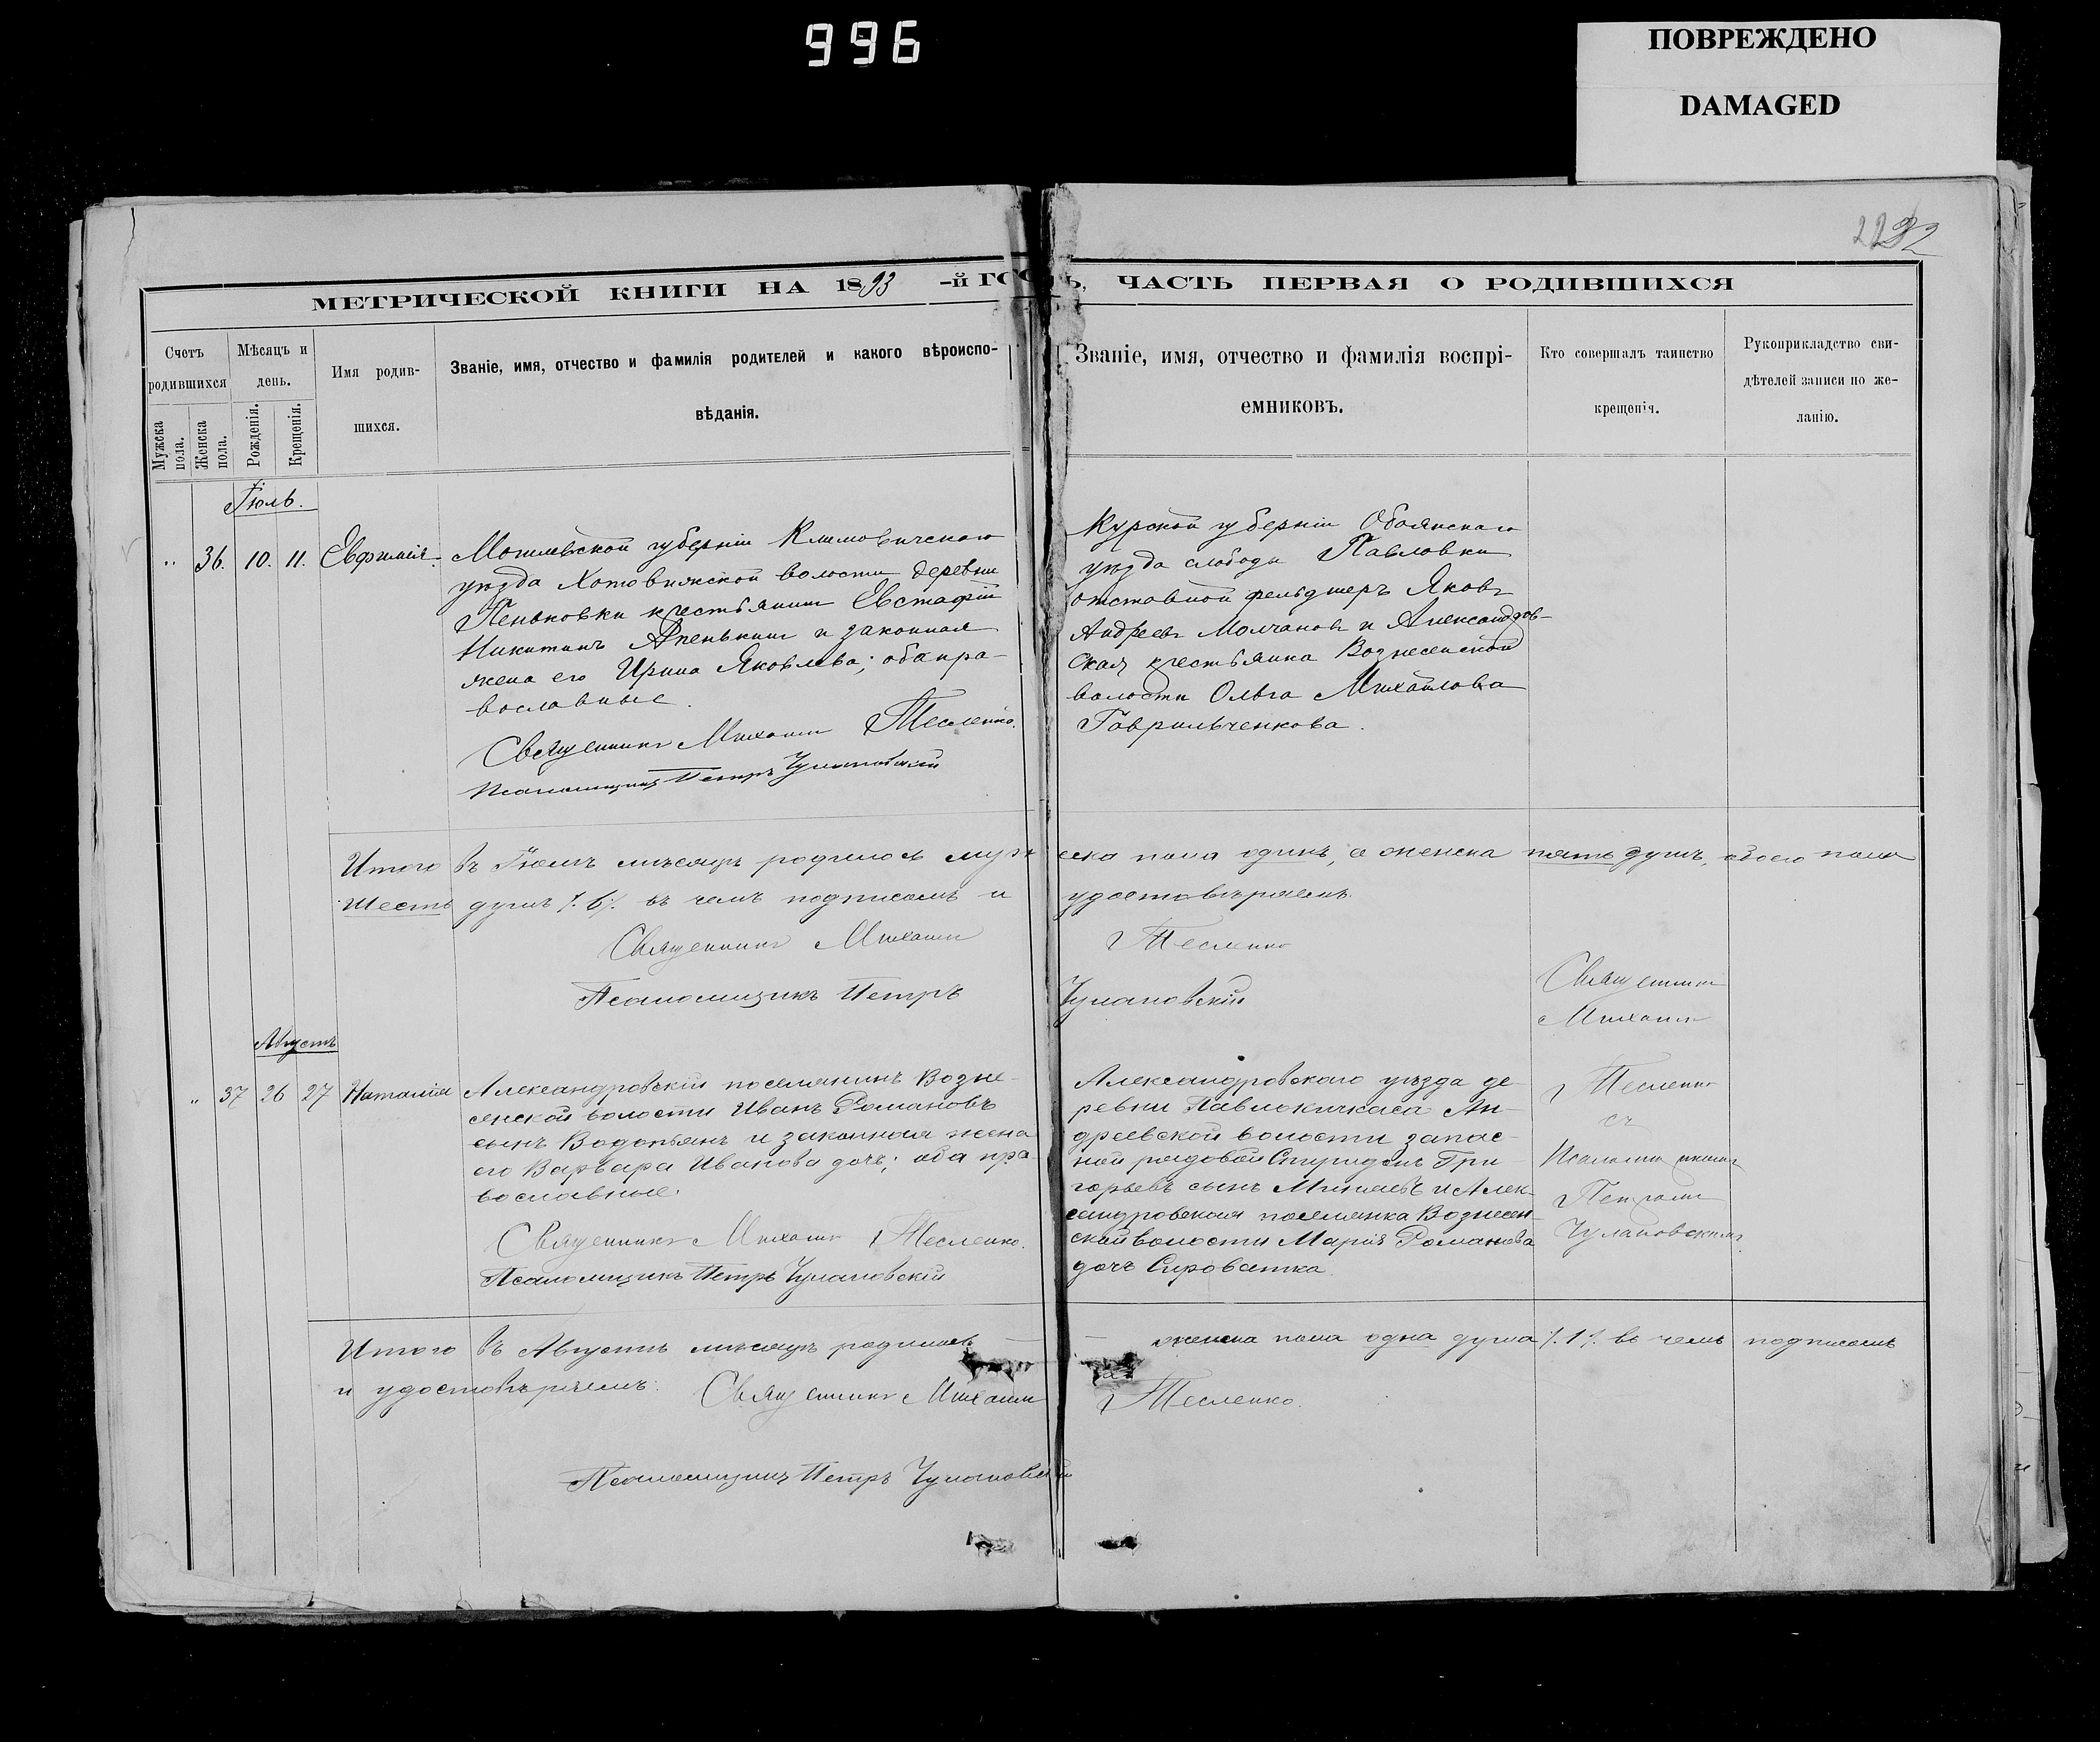 996
ПОВРЕЖДЕНО
DAMAGED
МЕТРИЧЕСКОЙ КНИГИ НА 1893 -й ГОДЪ, ЧАСТЬ ПЕРВАЯ О РОДИВШИХСЯ
Счетъ родившихся
Мужеска пола.
Женска пола.
Мѣсяцъ и день.
Рожденія.
Крещенія.
Имя родив-
шихся.
Званіе, имя, отчество и фамилія родителей и какого вѣроиспо-
вѣданія.
Званіе, имя, отчество и фамилія воспрі-
емниковъ.
Кто совершалъ таинство
крещенія.
Рукоприкладство сви-
дѣтелей записи по же-
ланію.
Іюль.
" 36. 10. 11. Евфимія.
Могилевской губерніи Климовичскаго
уѣзда Хотовижской волости деревни
Пеньковки крестьянинъ Евстафій
Никитинъ и законная
жена его Ирина Яковлева; оба пра-
вославные.
Священникъ Михаилъ Тесленко.
Псаломщикъ Петръ Чулановскій
Курской губерніи Обоянскаго
уѣзда слободы Павловки
отставной фельдшеръ Яковъ
Андреевъ Молчановъ и Александров-
ская крестьянка Вознесенской
волости Ольга Михайлова
Гаврильченкова.
Итого въ Іюлѣ мѣсяцѣ родилось муже ска пола одинъ, а женска пять душъ, обоего пола
шесть душъ ./. 6 ./. въ чемъ подписомъ и удостовѣряемъ.
Священникъ Михаилъ Тесленко
Псаломщикъ Петръ Чулановскій
Августъ
" 37 26 27 Наталія
Александровскій поселянинъ Возне-
сенской волости Иванъ Романовъ
сынъ Водопьянъ и законная жена
его Варвара Иванова дочь; оба пра-
вославные.
Священникъ Михаилъ Тесленко.
Псаломщикъ Петръ Чулановскій
Александровскаго уѣзда де-
ревни Павлокичкаса Ан-
дреевской волости запас-
ной рядовой Спиридонъ Гри-
горьевъ сынъ и Алек-
сандровская поселянка Вознесен-
ской волости Марія Романова
дочь Сыроватка.
Священникъ
Михаилъ
Тесленко
съ
Псаломщикомъ
Петромъ
Чулановскимъ
Итого въ Августѣ мѣсяцѣ родилось — — женска пола одна душа ./. 1 ./. въ чемъ подписомъ
и удостовѣряемъ. Священникъ Михаилъ Тесленко.
Псаломщикъ Петръ Чулановскій